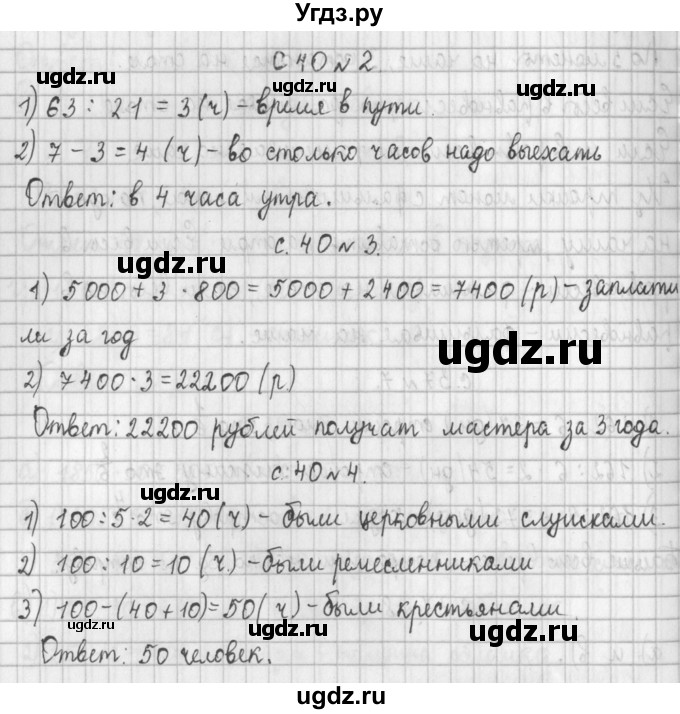 Угдз.ру
с. 40 № 2.
1) 63 : 21 = 3 (ч) – время в пути.
2) 7 – 3 = 4 (ч) – во столько часов надо выехать
Ответ: в 4 часа утра.
с. 40 № 3.
1) 5000 + 3 · 800 = 5000 + 2400 = 7400 (р) – заплати
ли за год
2) 7400 · 3 = 22200 (р)
Ответ: 22200 рублей получат мастера за 3 года.
с. 40 № 4.
1) 100 : 5 · 2 = 40 (ч) – были церковными слугами.
2) 100 : 10 = 10 (ч) – были ремесленниками
3) 100 – (40 + 10) = 50 (ч) – были крестьянами.
Ответ: 50 человек.
ugdz.ru
ugdz.ru
ugdz.ru
ugdz.ru
ugdz.ru
ugdz.ru
ugdz.ru
ugdz.ru
ugdz.ru
ugdz.ru
ugdz.ru